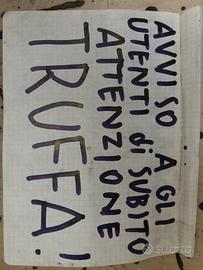 AVVISO AGLI
UTENTI di SUBITO
ATTENZIONE
TRUFFA!
SUBITO